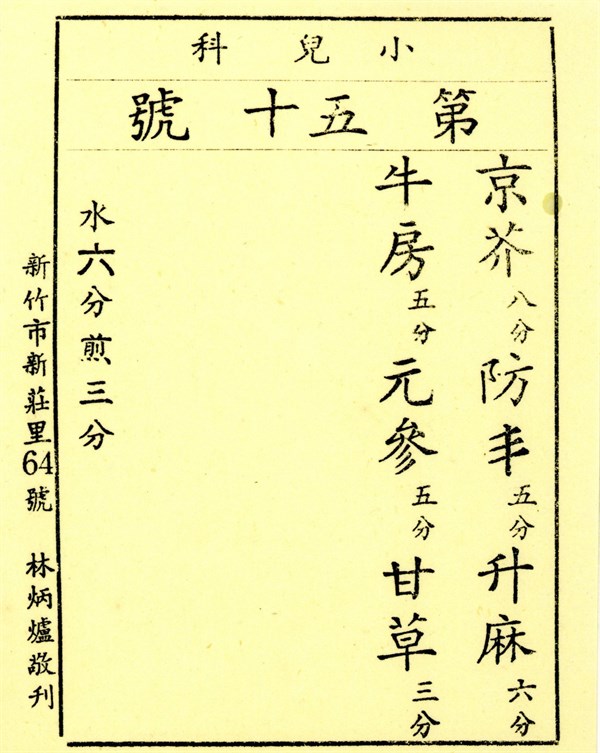 小兒科
第五十號
京芥八分防丰五分升麻六分
牛房五分元參五分甘草三分
水六分煎三分
新竹市新莊里64號 林炳爐敬刊